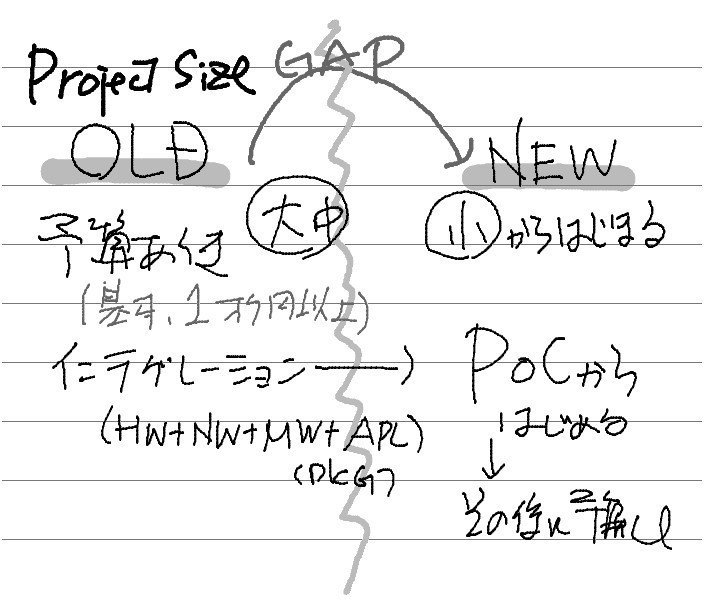 Project Size GAP
OLD
NEW
大中
小からはじまる
予算あ
(基本、1オク円以上)
インテグレーション → PoCから
はじめる
(HW+NW+MW+APL)
(PKG)
↓
その後に予算化